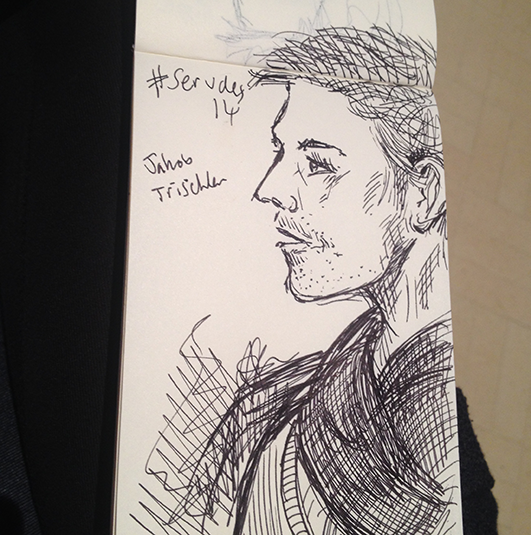 #Servdes
14
Jakob
Trischler